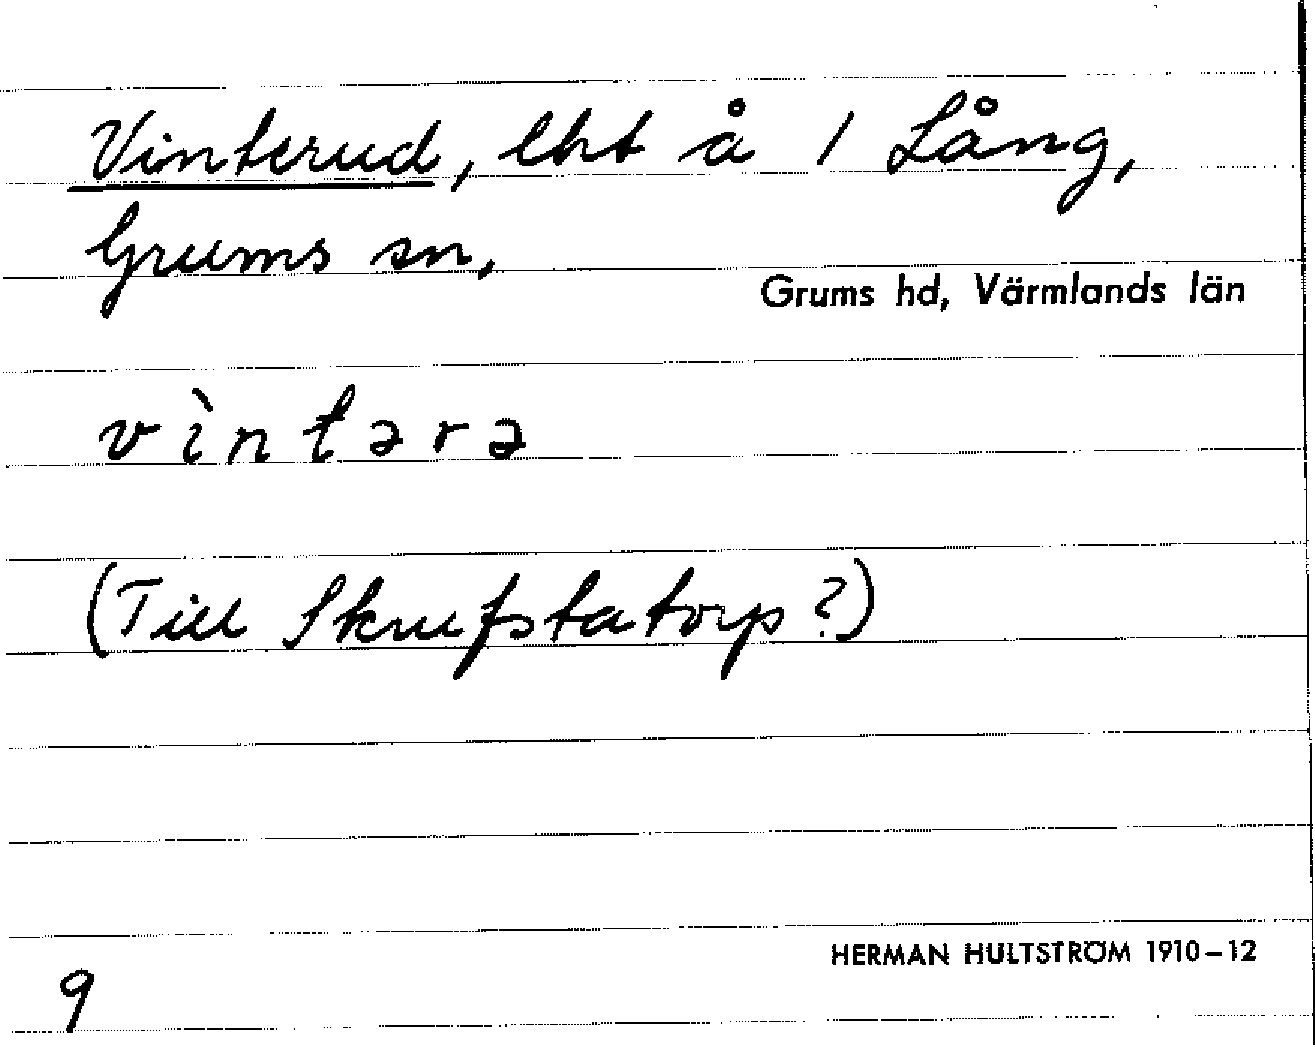 Vinterud, lht å 1 Lång,
Grums sn,
Grums hd, Värmlands län
vìntərə
(Till Skrufstatorp?)
HERMAN HULTSTRÖM 1910–12
9